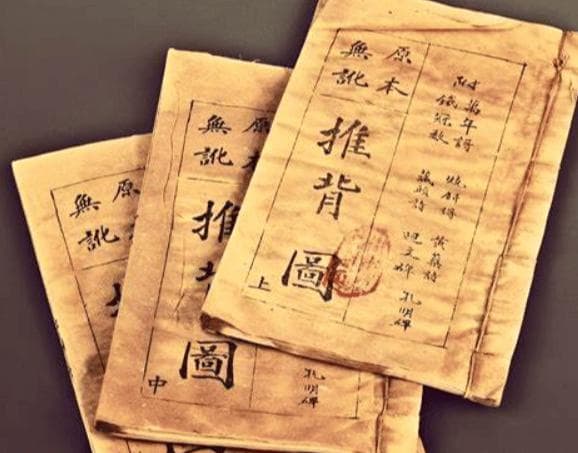 附
萬年詩
鐵冠數
藏頭詩
黃蘗詩
碑
孔明碑
原本
無訛
推背圖
上
原
無訛
推
圖
中
孔明碑
原
無訛